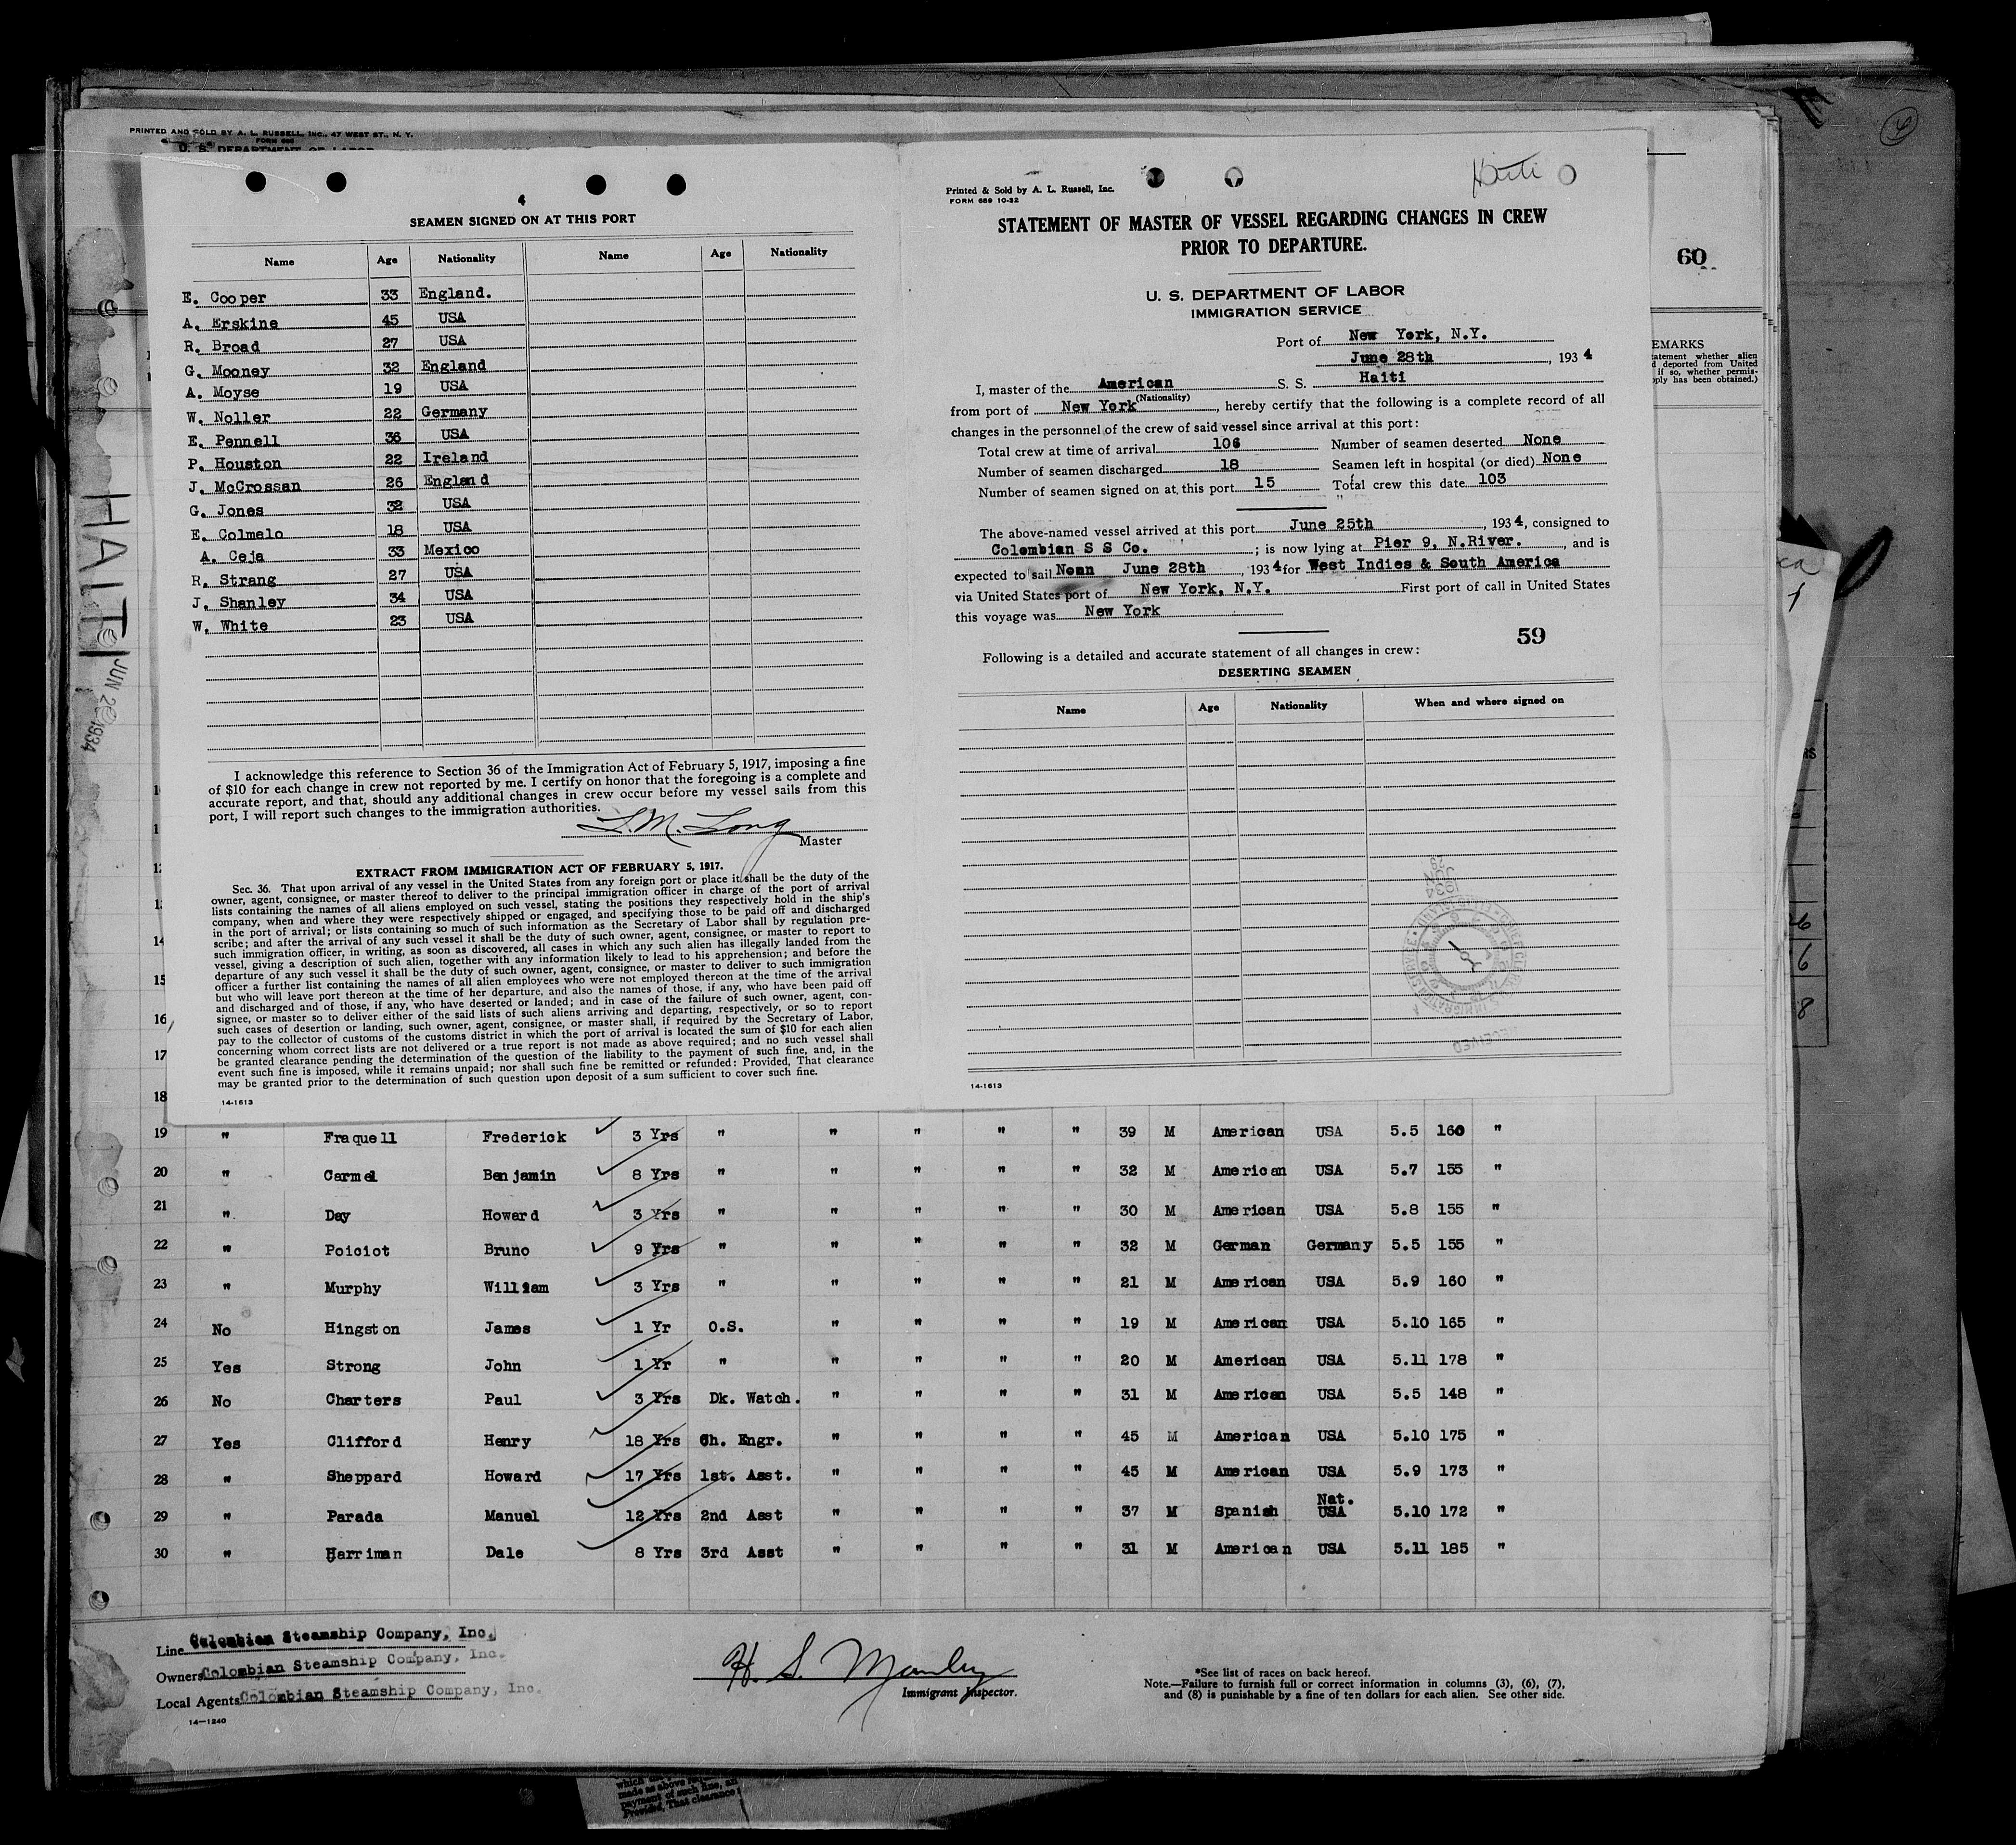 PRINTED AND SOLD BY A. L. RUSSELL, INC., 47 WEST ST., N. Y.
FORM 680
U. S. DEPARTMENT OF LABOR
4
SEAMEN SIGNED ON AT THIS PORT
Name Age Nationality Name Age Nationality
E. Cooper 33 England.
A. Erskine 45 USA
R. Broad 27 USA
G. Mooney 32 England
A. Moyse 19 USA
W. Noller 22 Germany
E. Pennell 36 USA
P. Houston 22 Ireland
J. McCrossan 26 England
G. Jones 32 USA
E. Colmelo 18 USA
A. Ceja 33 Mexico
R. Strang 27 USA
J. Shanley 34 USA
W. White 23 USA
I acknowledge this reference to Section 36 of the Immigration Act of February 5, 1917, imposing a fine
of $10 for each change in crew not reported by me. I certify on honor that the foregoing is a complete and
accurate report, and that, should any additional changes in crew occur before my vessel sails from this
port, I will report such changes to the immigration authorities.
L. M. Long
Master
EXTRACT FROM IMMIGRATION ACT OF FEBRUARY 5, 1917.
Sec. 36. That upon arrival of any vessel in the United States from any foreign port or place it shall be the duty of the
owner, agent, consignee, or master thereof to deliver to the principal immigration officer in charge of the port of arrival
lists containing the names of all aliens employed on such vessel, stating the positions they respectively hold in the ship's
company, when and where they were respectively shipped or engaged, and specifying those to be paid off and discharged
in the port of arrival; or lists containing so much of such information as the Secretary of Labor shall by regulation pre-
scribe; and after the arrival of any such vessel it shall be the duty of such owner, agent, consignee, or master to report to
such immigration officer, in writing, as soon as discovered, all cases in which any such alien has illegally landed from the
vessel, giving a description of such alien, together with any information likely to lead to his apprehension; and before the
departure of any such vessel it shall be the duty of such owner, agent, consignee, or master to deliver to such immigration
officer a further list containing the names of all alien employees who were not employed thereon at the time of the arrival
but who will leave port thereon at the time of her departure, and also the names of those, if any, who have been paid off
and discharged and of those, if any, who have deserted or landed; and in case of the failure of such owner, agent, con-
signee, or master so to deliver either of the said lists of such aliens arriving and departing, respectively, or so to report
such cases of desertion or landing, such owner, agent, consignee, or master shall, if required by the Secretary of Labor,
pay to the collector of customs of the customs district in which the port of arrival is located the sum of $10 for each alien
concerning whom correct lists are not delivered or a true report is not made as above required; and no such vessel shall
be granted clearance pending the determination of the question of the liability to the payment of such fine, and, in the
event such fine is imposed, while it remains unpaid; nor shall such fine be remitted or refunded: Provided, That clearance
may be granted prior to the determination of such question upon deposit of a sum sufficient to cover such fine.
14-1613
Haiti
Printed & Sold by A. L. Russell, Inc.
FORM 689 10-32
STATEMENT OF MASTER OF VESSEL REGARDING CHANGES IN CREW
PRIOR TO DEPARTURE.
U. S. DEPARTMENT OF LABOR
IMMIGRATION SERVICE
Port of New York, N.Y.
June 28th, 1934
I, master of the American S. S. Haiti
(Nationality)
from port of New York, hereby certify that the following is a complete record of all
changes in the personnel of the crew of said vessel since arrival at this port:
Total crew at time of arrival 106 Number of seamen deserted None
Number of seamen discharged 18 Seamen left in hospital (or died) None
Number of seamen signed on at this port 15 Total crew this date 103
The above-named vessel arrived at this port June 25th, 1934, consigned to
Colombian S S Co.; is now lying at Pier 9, N.River., and is
expected to sail Noon June 28th, 1934 for West Indies & South America
via United States port of New York, N.Y. First port of call in United States
this voyage was New York
59
Following is a detailed and accurate statement of all changes in crew:
DESERTING SEAMEN
Name Age Nationality When and where signed on
RECEIVED
14-1613
60
EMARKS
tatement whether alien
d deported from United
if so, whether permis-
pply has been obtained.)
HAITI
JUN 2 1934
14
15
16
17
18
19 " Fraquell Frederick 3 Yrs " " " " " 39 M American USA 5.5 160 "
20 " Carmel Benjamin 8 Yrs " " " " " 32 M American USA 5.7 155 "
21 " Day Howard 3 Yrs " " " " " 30 M American USA 5.8 155 "
22 " Poiciot Bruno 9 Yrs " " " " " 32 M German Germany 5.5 155 "
23 " Murphy William 3 Yrs " " " " " 21 M American USA 5.9 160 "
24 No Hingston James 1 Yr O.S. " " " " 19 M American USA 5.10 165 "
25 Yes Strong John 1 Yr " " " " " 20 M American USA 5.11 178 "
26 No Charters Paul 3 Yrs Dk. Watch. " " " " 31 M American USA 5.5 148 "
27 Yes Clifford Henry 18 Yrs Ch. Engr. " " " " 45 M American USA 5.10 175 "
28 " Sheppard Howard 17 Yrs 1st. Asst. " " " " 45 M American USA 5.9 173 "
29 " Parada Manuel 12 Yrs 2nd Asst " " " " 37 M Spanish Nat. USA 5.10 172 "
30 " Harriman Dale 8 Yrs 3rd Asst " " " " 31 M American USA 5.11 185 "
Line Colombian Steamship Company, Inc.
Owners Colombian Steamship Company, Inc.
Local Agents Colombian Steamship Company, Inc.
14-1240
H. S. Manley
Immigrant Inspector.
*See list of races on back hereof.
Note.—Failure to furnish full or correct information in columns (3), (6), (7),
and (8) is punishable by a fine of ten dollars for each alien. See other side.
made as above
payment of such fine, an
Provided, That clearance